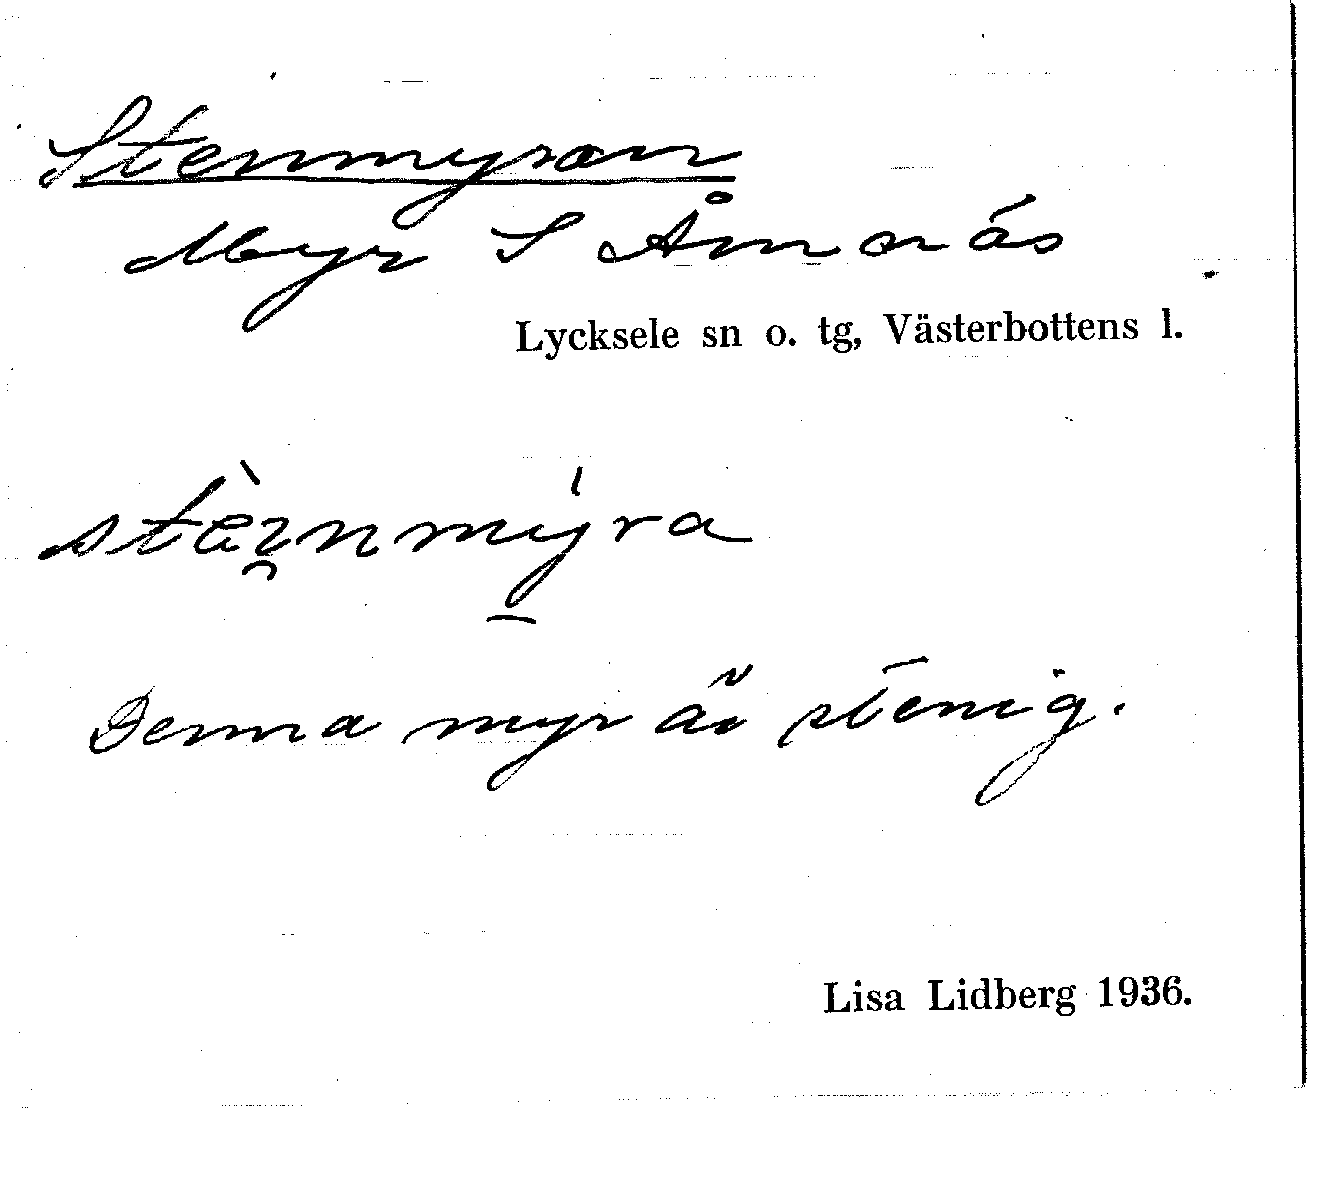 Stenmyran
Myr S Åmnäs
Lycksele sn o. tg, Västerbottens l.
Denna myr är stenig.
Lisa Lidberg 1936.